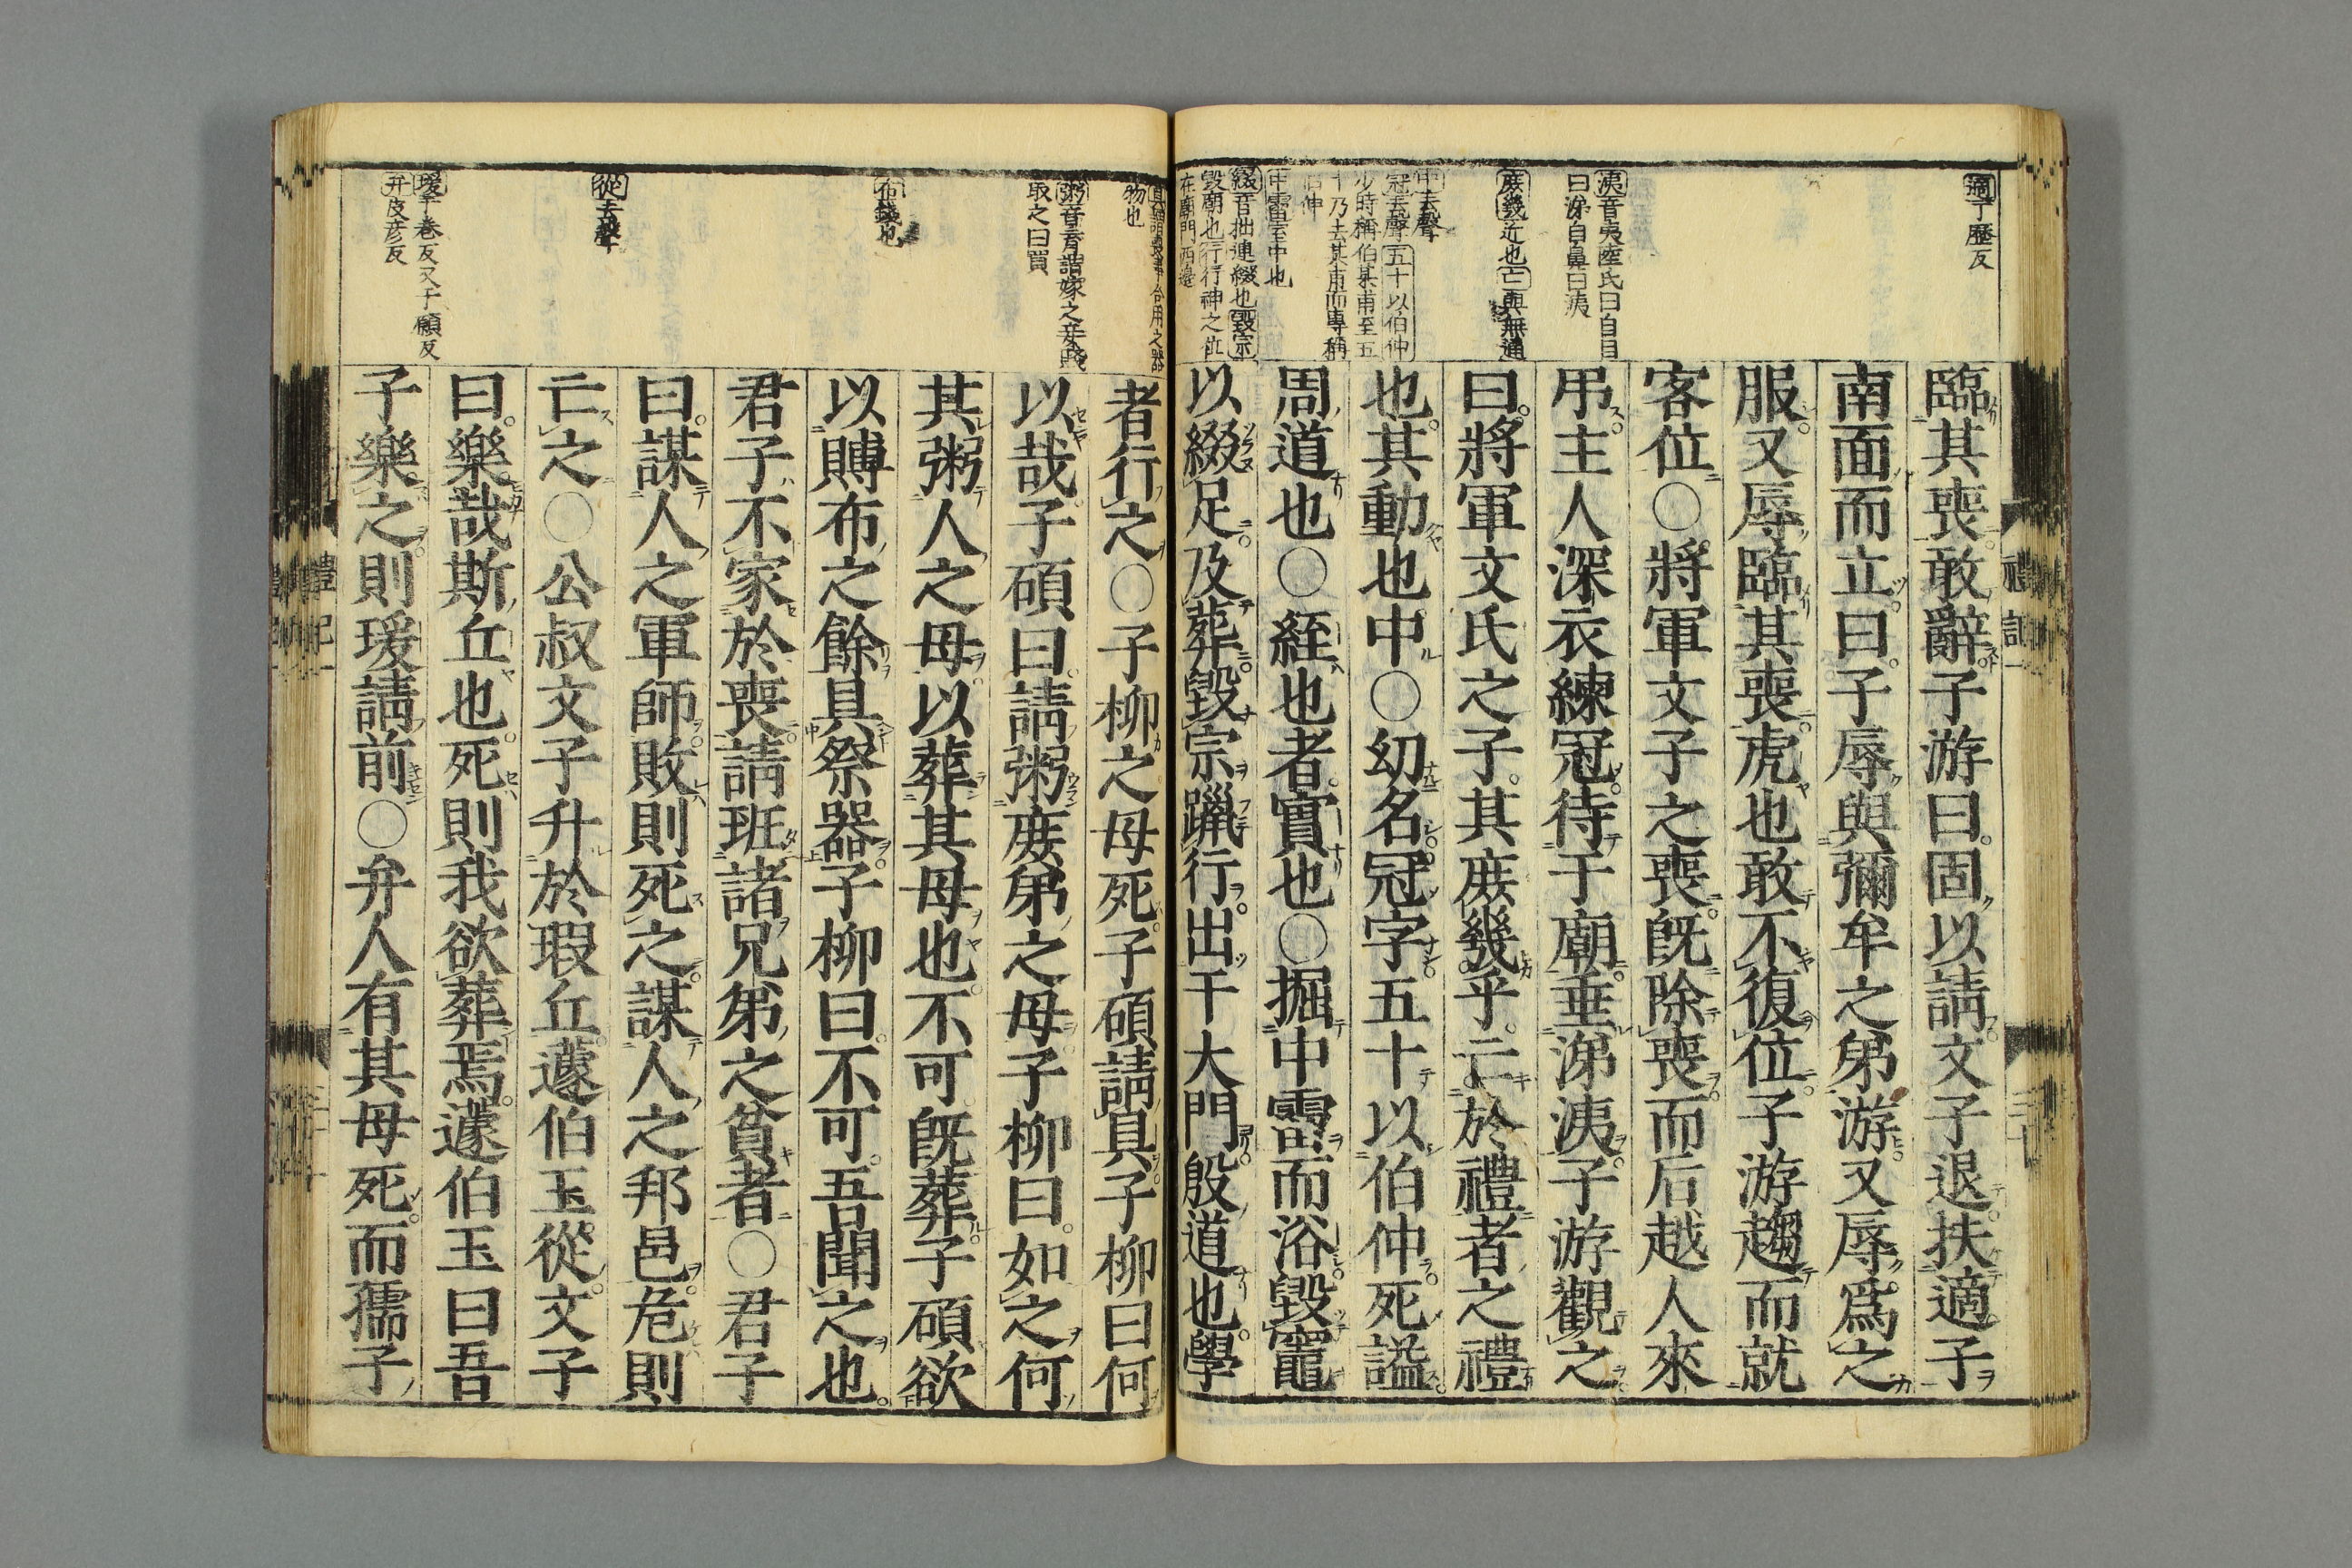 適丁歷反
洟音夷陸氏曰自目
曰涕自鼻曰洟
庶幾近也亡與無通
中去聲
冠去聲五十以伯仲
少時稱伯某甫至五
十乃去其甫而專稱
伯仲
中霤室中也
綴音拙連綴也毀宗
毀廟也行行神之位
在廟門西邊
臨其喪敢辭子游曰固以請文子退扶適子
南面而立曰子辱與彌牟之弟游又辱爲之
服又辱臨其喪虎也敢不復位子游趨而就
客位○將軍文子之喪既除喪而后越人來
吊主人深衣練冠待于廟垂涕洟子游觀之
曰將軍文氏之子其庶幾乎亡於禮者之禮
也其動也中○幼名冠字五十以伯仲死謚
周道也○絰也者實也○掘中霤而浴毀竈
以綴足及葬毀宗躐行出于大門殷道也學
禮記一
具謂喪事合用之器
物也
粥音育謂嫁之妾賤
取之曰買
布錢也
從去聲
瑗平巻反又于願反
弁皮彦反
者行之○子柳之母死子碩請具子柳曰何
以哉子碩曰請粥庶弟之母子柳曰如之何
其粥人之母以葬其母也不可既葬子碩欲
以賻布之餘具祭器子柳曰不可吾聞之也
君子不家於喪請班諸兄弟之貧者○君子
曰謀人之軍師敗則死之謀人之邦邑危則
亡之○公叔文子升於瑕丘蘧伯玉從文子
曰樂哉斯丘也死則我欲葬焉蘧伯玉曰吾
子樂之則瑗請前○弁人有其母死而孺子
禮記一